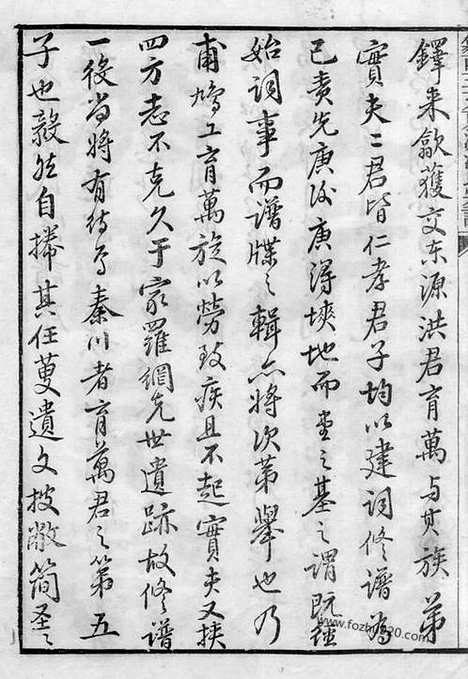 鐸来歙獲交东源洪君育萬与其族弟
實夫二君皆仁孝君子均以建祠修譜為
已责先庚後庚得堧地而垂之基之謂既經
始祠事而谱牒之輯亦将次第舉也乃
甫鳩工育萬旋以勞致疾且不起實夫又挟
四方志不克久于家羅網先世遺跡故修譜
一後当将有待焉秦川者育萬君之第五
子也毅然自攜其任蔓遺文披敝簡圣之
www.fozhu920.com